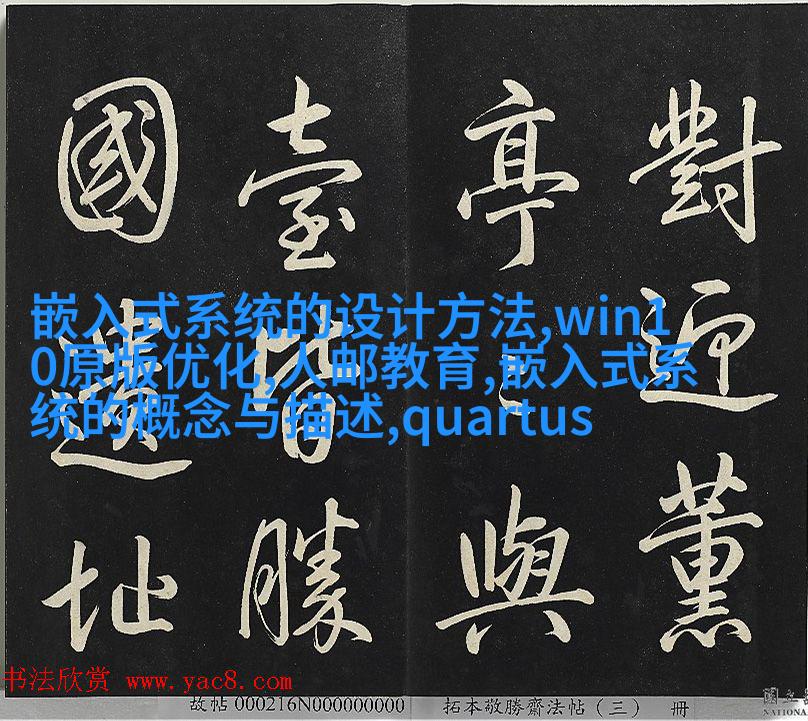 對迎薰
亭與
臺皆勝
國遺址
嵌入式系统的设计方法,win1
0原版优化,人邮教育,嵌入式系
统的概念与描述,quartus
书法欣赏 www.yac8.com
故帖 000216N000000000 拓本敬勝齋法帖（三） 册
國立
NATIONA